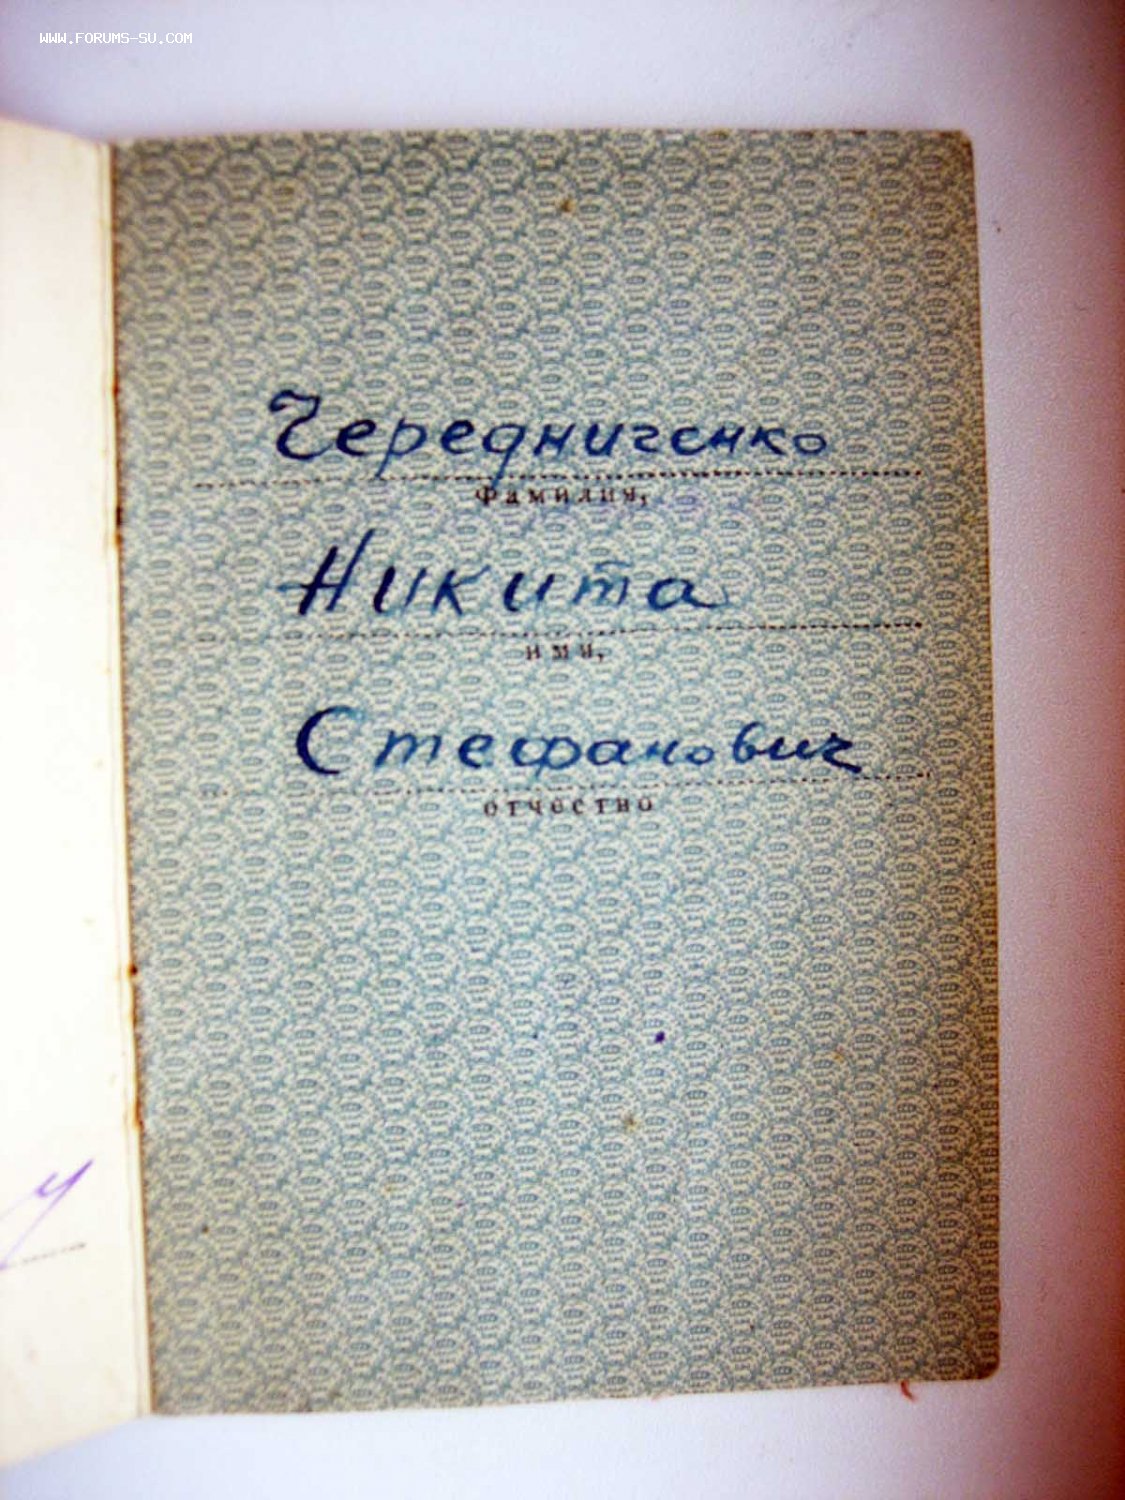 WWW.FORUMS-SU.COM
Чередниченко
Фамилия,
Никита
имя,
Стефанович
отчество